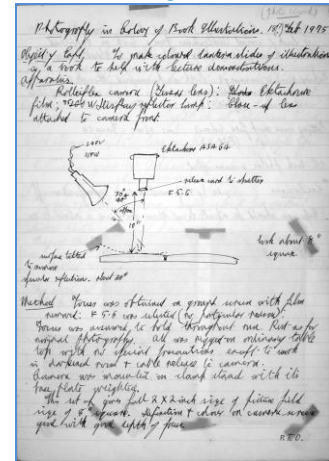 Photography in Colour of Book Illustrations. 18th Feb 1975
Object of task. To make coloured lantern slides of illustrations
in a book to help with lecture demonstrations.
Apparatus.
Rolleiflex camera (Zeiss lens): Ektachrome
film: reflector lamp: Close-up lens
attached to camera front.
Ektachrome ASA 64
release cord to shutter
F 5.6
10"
book about 8"
square.
surface tilted
to remove
specular reflection. about 20°
Method Focus was obtained on ground screen with film
removed: F 5.6 was selected (no particular reason).
Focus was assumed to hold throughout run. Rest as for
normal photography. All was rigged on ordinary table
top with no special precautions except to work
in darkened room + cable release to camera.
Camera was mounted on clamp stand with its
base plate weighted.
This set up gives full 2 x 2 inch size of picture field
size of 8" square. Definition + colour on screen
good with good depth of focus.